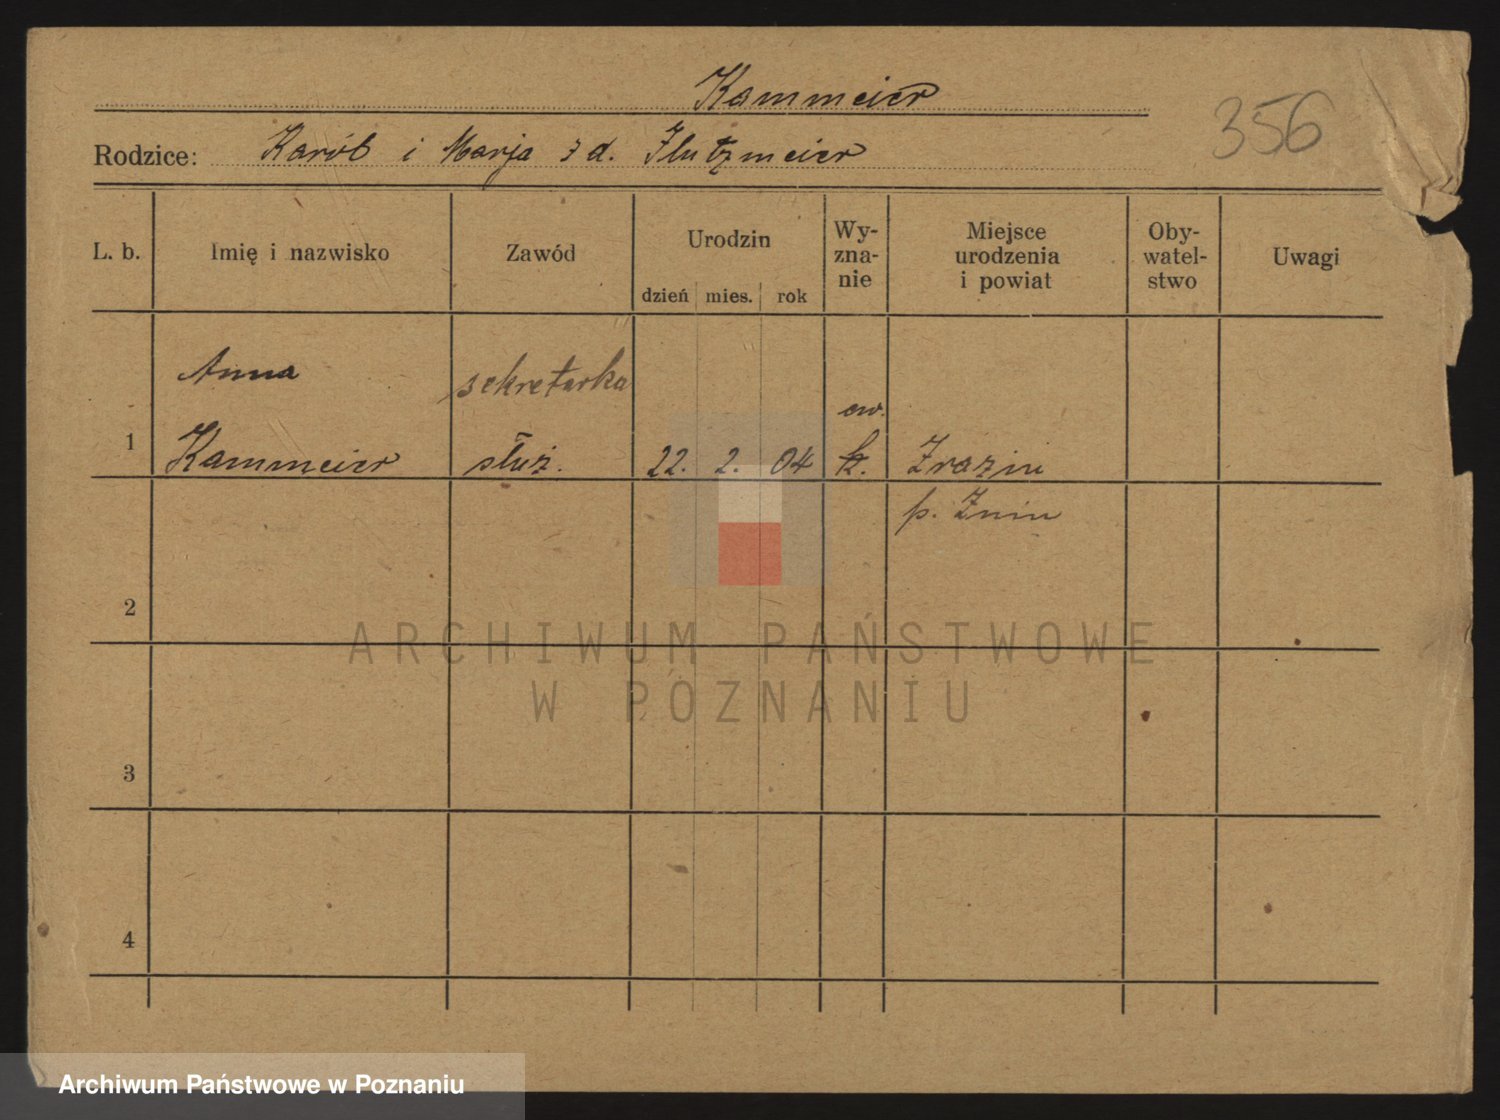 Kammeier
356
Rodzice: Karól i Marja z d.
L. b. Imię i nazwisko Zawód Urodzin dzień mies. rok Wy-zna-nie Miejsce urodzenia i powiat Oby-watel-stwo Uwagi
Anna sekretarka
ew.
1 Kammeier służ. 22. 2. 04 k. Zrazin
p. Znin
2
ARCHIWUM PAŃSTWOWE
W POZNANIU
3
4
Archiwum Państwowe w Poznaniu